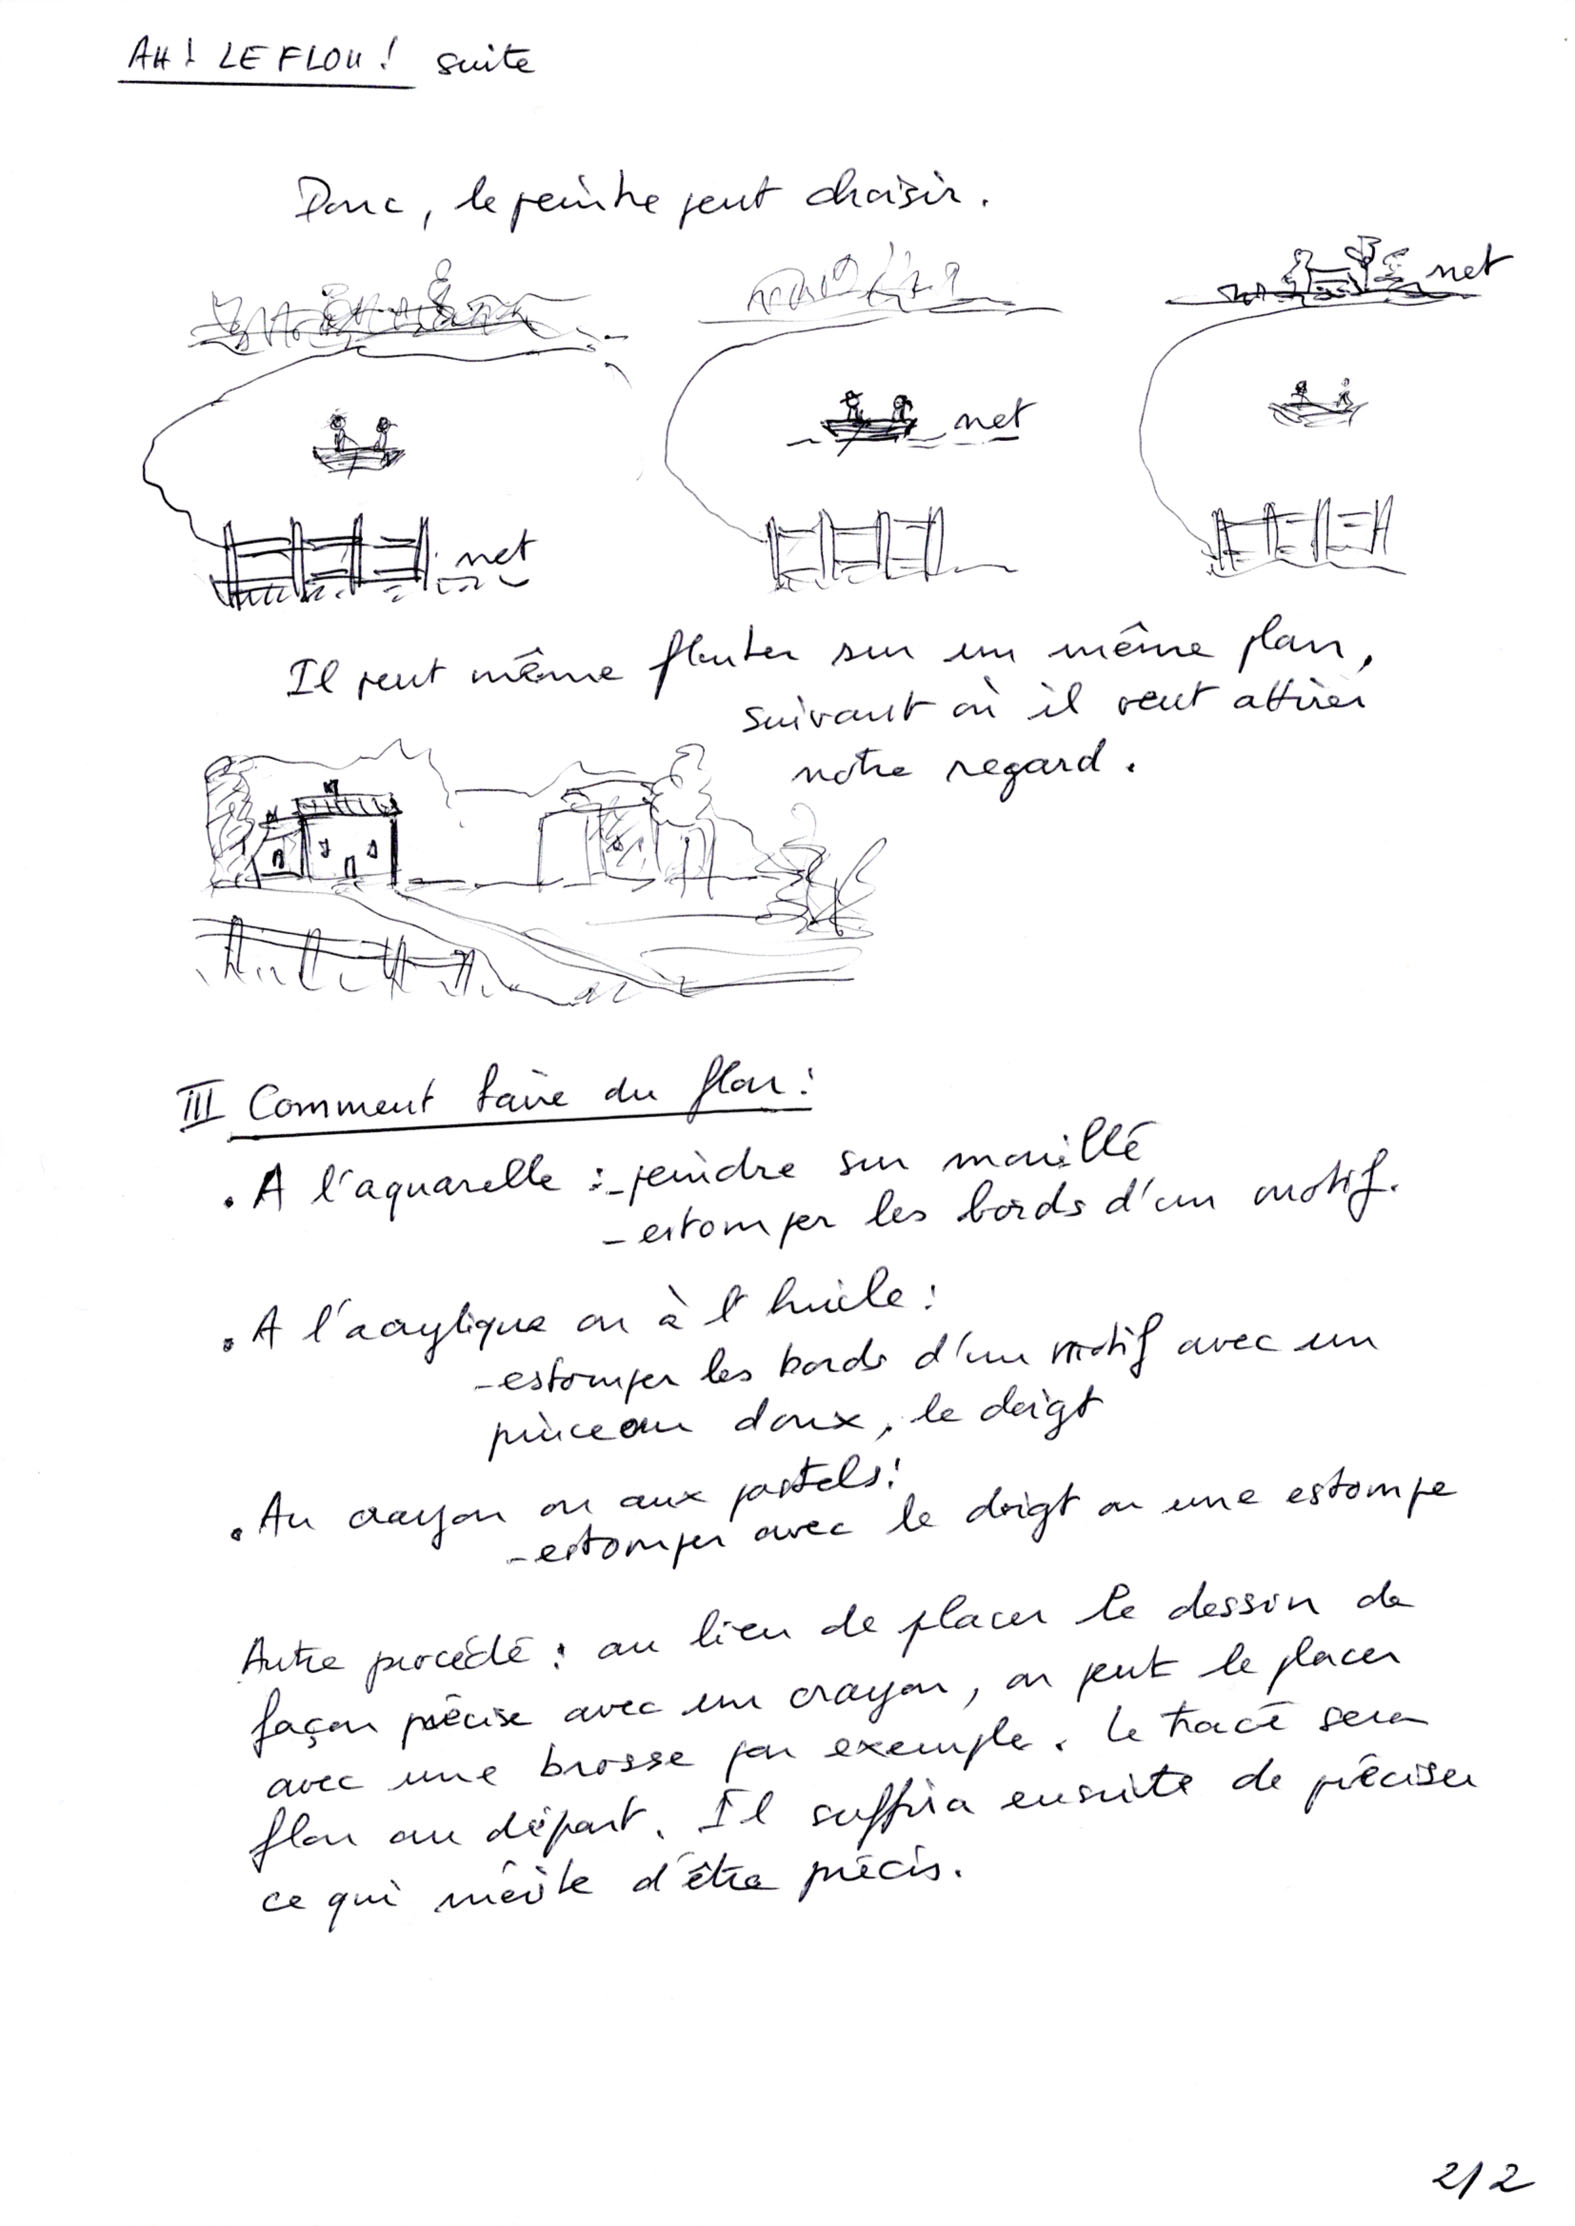 AH! LE FLOU! suite
Donc, le peintre peut choisir.
net
net
net
Il peut même flouter sur un même plan,
suivant où il veut attirer
notre regard.
III Comment faire du flou :
. A l'aquarelle : - peindre sur mouillé
- estomper les bords d'un motif.
. A l'acrylique ou à l'huile :
- estomper les bords d'un motif avec un
pinceau doux, le doigt
. Au crayon ou aux pastels :
- estomper avec le doigt ou une estompe
Autre procédé : au lieu de placer le dessin de
façon précise avec un crayon, on peut le placer
avec une brosse par exemple. Le tracé sera
flou au départ. Il suffira ensuite de préciser
ce qui mérite d'être précis.
2/2